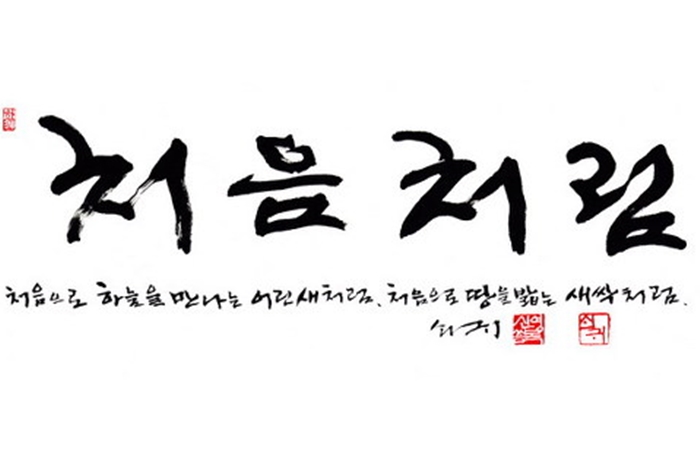 처음처럼
처음으로 하늘을 만나는 어린새처럼, 처음으로 땅을 밟는 새싹처럼.
쇠귀